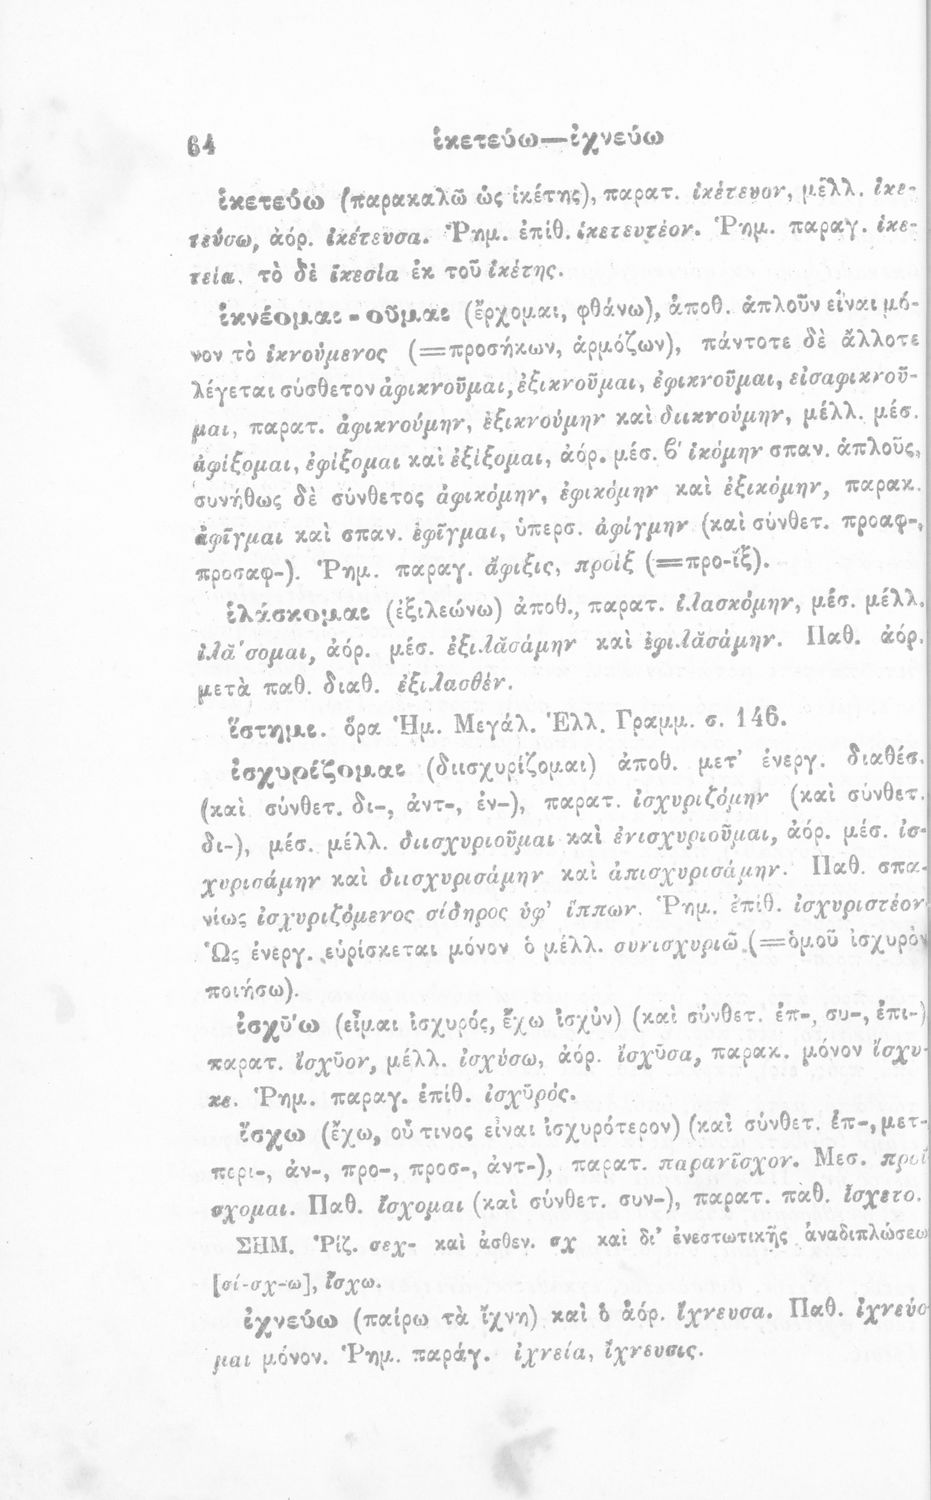 64
ἱκετεύω—ἰχνεύω
ἱκετεύω (παρακαλῶ ὡς ἱκέτης), παρατ. ἱκέτευον, μέλλ. ἱκε-
τεύσω, ἀόρ. ἱκέτευσα. Ῥημ. ἐπίθ. ἱκετευτέον. Ῥημ. παραγ. ἱκε-
τεία. τὸ δὲ ἱκεσία ἐκ τοῦ ἱκέτης.
ἱκνέομαι - οῦμαι (ἔρχομαι, φθάνω), ἀποθ. ἁπλοῦν εἶναι μό-
νον τὸ ἱκνούμενος (=προσήκων, ἁρμόζων), πάντοτε δὲ ἄλλοτε
λέγεται σύσθετον ἀφικνοῦμαι, ἐξικνοῦμαι, ἐφικνοῦμαι, εἰσαφικνοῦ-
μαι, παρατ. ἀφικνούμην, ἐξικνούμην καὶ διικνούμην, μέλλ. μέσ.
ἀφίξομαι, ἐφίξομαι καὶ ἐξίξομαι, ἀόρ. μέσ. β' ἱκόμην σπαν. ἁπλοῦς,
συνήθως δὲ σύνθετος ἀφικόμην, ἐφικόμην καὶ ἐξικόμην, παρακ.
ἀφῖγμαι καὶ σπαν. ἐφῖγμαι, ὑπερσ. ἀφίγμην (καὶ σύνθετ. προαφ-,
προσαφ-). Ῥημ. παραγ. ἄφιξις, προὶξ (=προ-ΐξ).
ἱλάσκομαι (ἐξιλεώνω) ἀποθ., παρατ. ἱλασκόμην, μέσ. μέλλ.
ἱλᾰ́σομαι, ἀόρ. μέσ. ἐξιλᾰσάμην καὶ ἐφιλᾰσάμην. Παθ. ἀόρ.
μετὰ παθ. διαθ. ἐξιλασθέν.
ἵστημι. ὅρα Ἡμ. Μεγάλ. Ἑλλ. Γραμμ. σ. 146.
ἰσχυρίζομαι (διισχυρίζομαι) ἀποθ. μετ' ἐνεργ. διαθέσ.
(καὶ σύνθετ. δι-, ἀντ-, ἐν-), παρατ. ἰσχυριζόμην (καὶ σύνθετ.
δι-), μέσ. μέλλ. διισχυριοῦμαι καὶ ἐνισχυριοῦμαι, ἀόρ. μέσ. ἰσ-
χυρισάμην καὶ διισχυρισάμην καὶ ἀπισχυρισάμην. Παθ. σπα-
νίως ἰσχυριζόμενος σίδηρος ὑφ' ἵππων. Ῥημ. ἐπίθ. ἰσχυριστέον
Ὡς ἐνεργ. εὑρίσκεται μόνον ὁ μέλλ. συνισχυριῶ (=ὁμοῦ ἰσχυρὸν
ποιήσω).
ἰσχῡ́ω (εἶμαι ἰσχυρός, ἔχω ἰσχὺν) (καὶ σύνθετ. ἐπ-, συ-, ἐπι-)
παρατ. ἴσχῡον, μέλλ. ἰσχύσω, ἀόρ. ἴσχῡσα, παρακ. μόνον ἴσχυ-
κε. Ῥημ. παραγ. ἐπίθ. ἰσχῡρός.
ἴσχω (ἔχω, οὗ τινος εἶναι ἰσχυρότερον) (καὶ σύνθετ. ἐπ-, μετ-
περι-, ἀν-, προ-, προσ-, ἀντ-), παρατ. παρανῖσχον. Μεσ. προΐ
σχομαι. Παθ. ἴσχομαι (καὶ σύνθετ. συν-), παρατ. παθ. ἴσχετο.
ΣΗΜ. Ῥίζ. σεχ- καὶ ἀσθεν. σχ καὶ δι' ἐνεστωτικῆς ἀναδιπλώσεω
[σί-σχ-ω], ἴσχω.
ἰχνεύω (παίρω τὰ ἴχνη) καὶ ὁ ἀόρ. ἴχνευσα. Παθ. ἰχνεύο
μαι μόνον. Ῥημ. παράγ. ἰχνεία, ἴχνευσις.